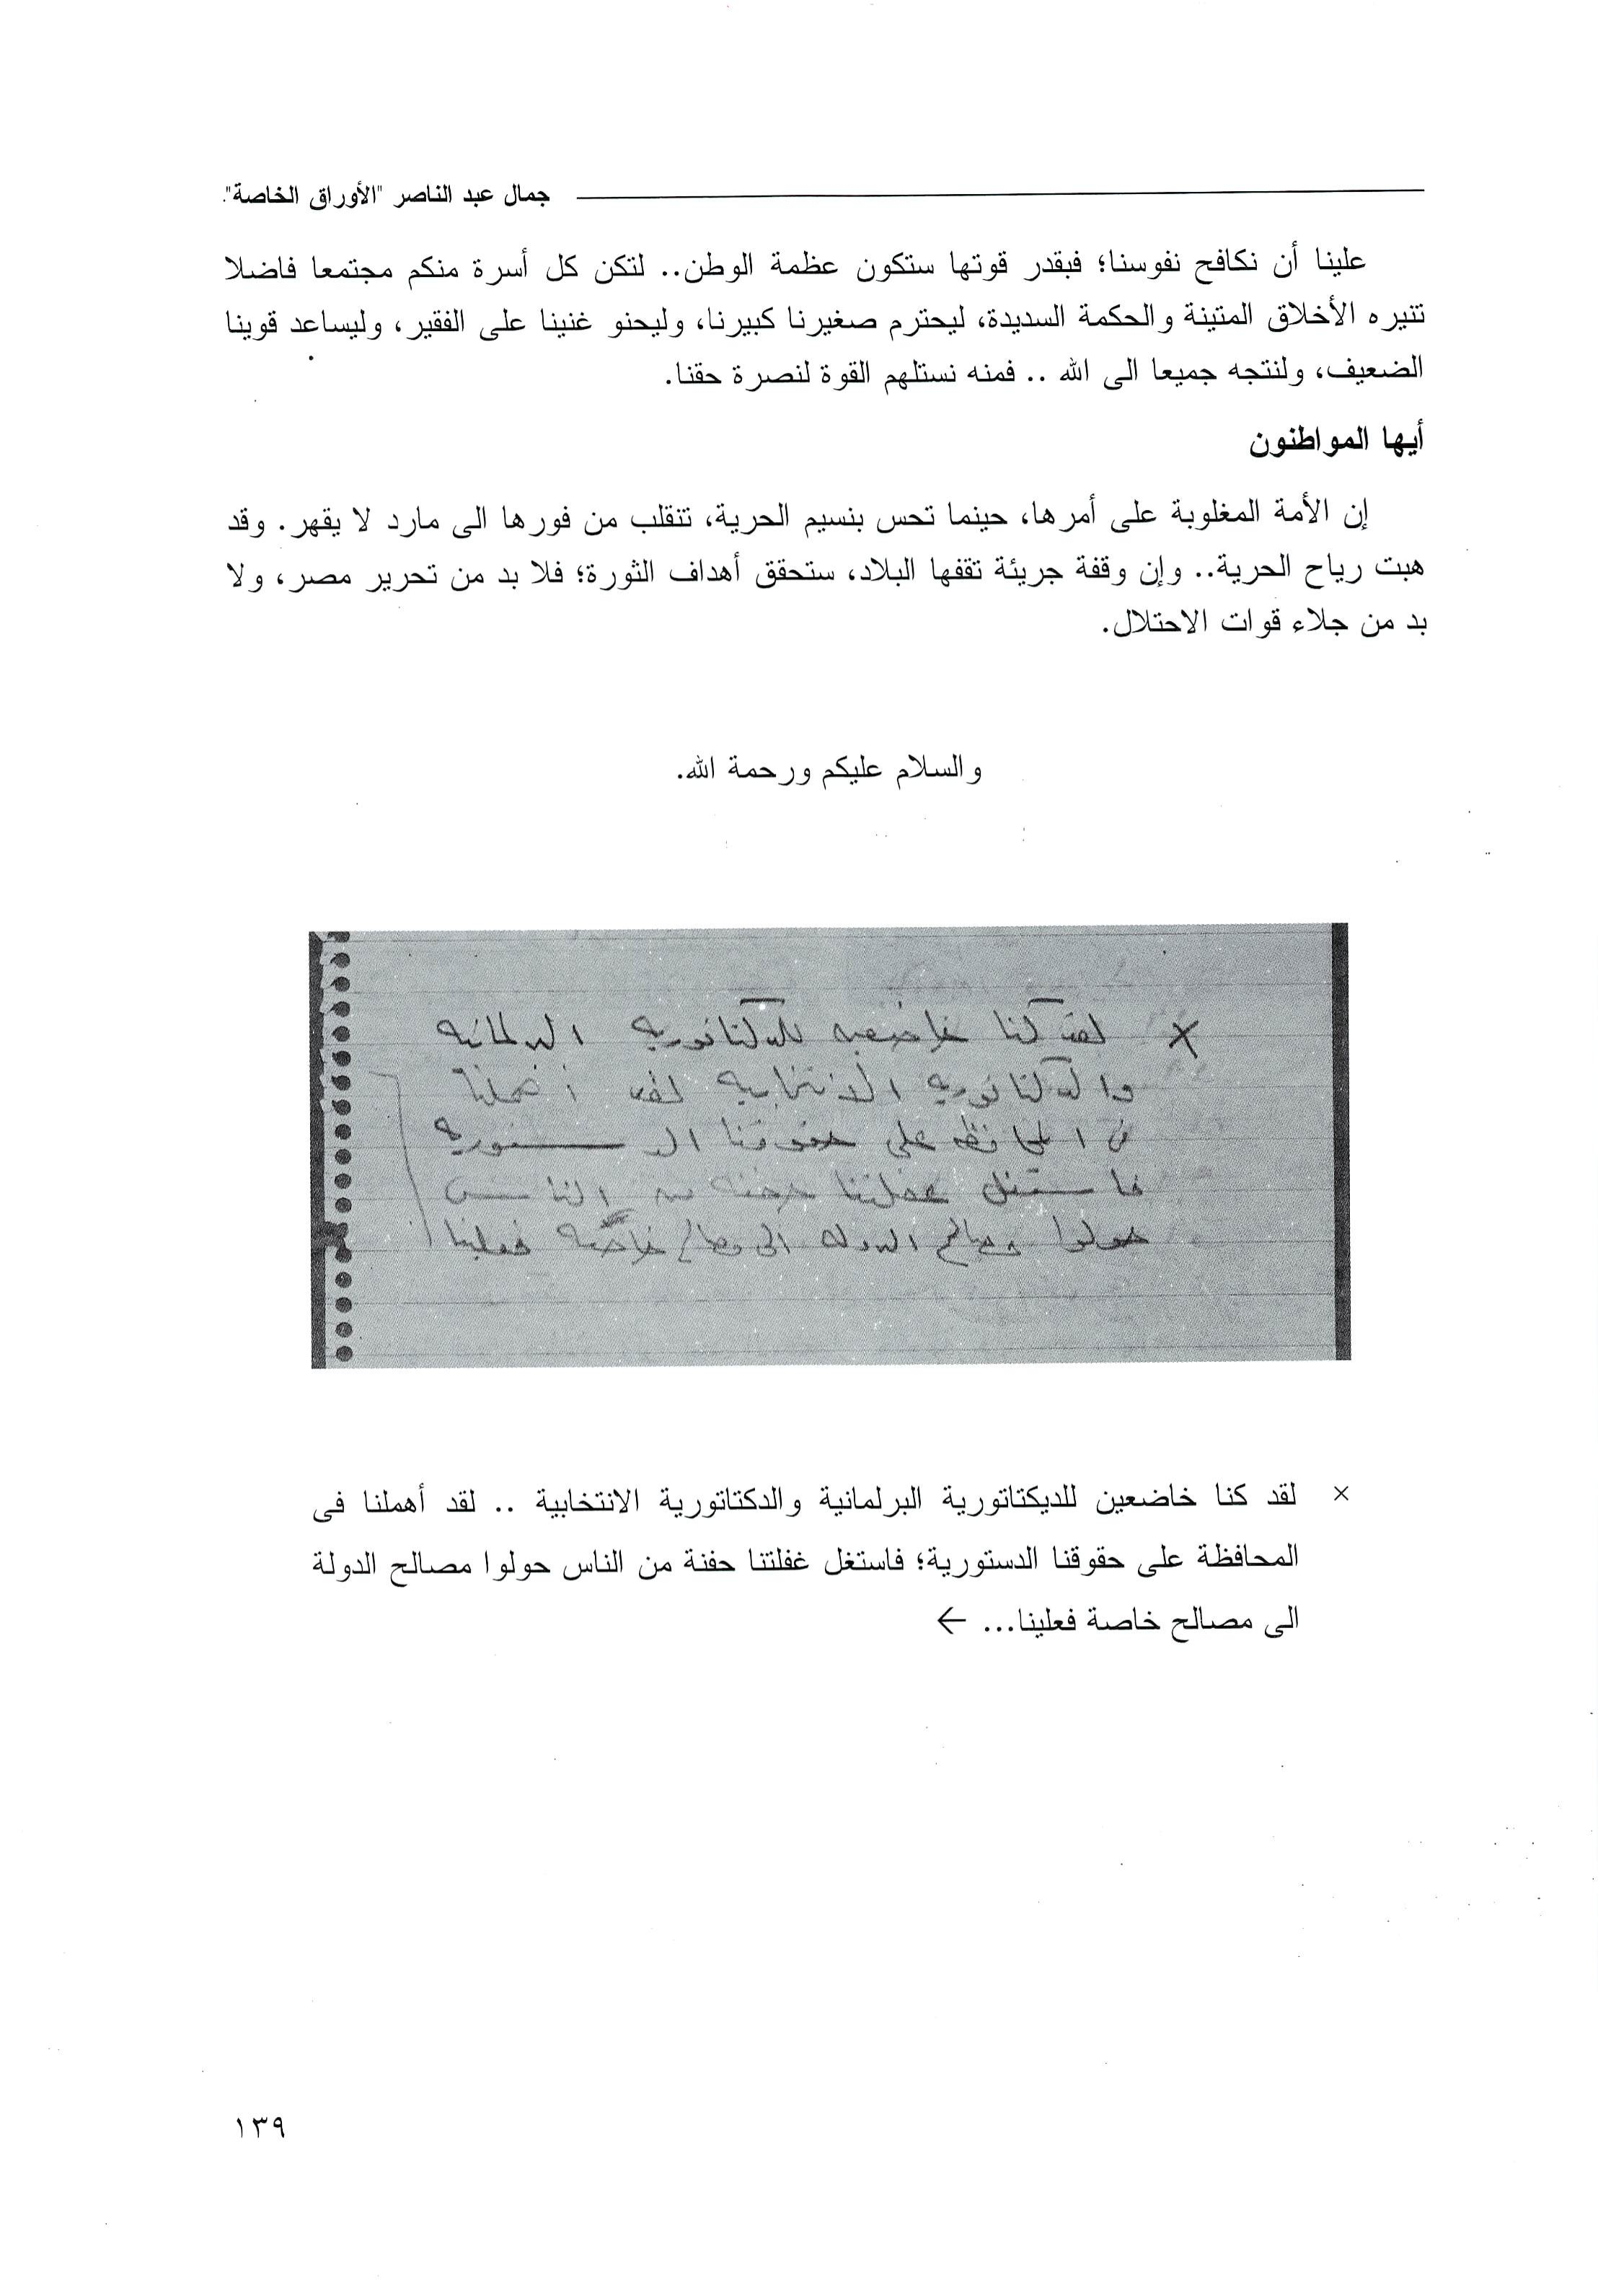 جمال عبد الناصر "الأوراق الخاصة".
علينا أن نكافح نفوسنا؛ فبقدر قوتها ستكون عظمة الوطن.. لتكن كل أسرة منكم مجتمعا فاضلا
تنيره الأخلاق المتينة والحكمة السديدة، ليحترم صغيرنا كبيرنا، وليحنو غنينا على الفقير، وليساعد قوينا
الضعيف، ولنتجه جميعا الى الله .. فمنه نستلهم القوة لنصرة حقنا.
أيها المواطنون
إن الأمة المغلوبة على أمرها، حينما تحس بنسيم الحرية، تنقلب من فورها الى مارد لا يقهر. وقد
هبت رياح الحرية.. وإن وقفة جريئة تقفها البلاد، ستحقق أهداف الثورة؛ فلا بد من تحرير مصر، ولا
بد من جلاء قوات الاحتلال.
والسلام عليكم ورحمة الله.
× لقد كنا خاضعين للدكتاتورية البرلمانية
والدكتاتورية الانتخابية لقد اهملنا
فى المحافظه على حقوقنا الدستورية
فاستغل غفلتنا حفنه من الناس
حولوا مصالح الدوله الى مصالح خاصه فعلينا
× لقد كنا خاضعين للديكتاتورية البرلمانية والدكتاتورية الانتخابية .. لقد أهملنا فى
المحافظة على حقوقنا الدستورية؛ فاستغل غفلتنا حفنة من الناس حولوا مصالح الدولة
الى مصالح خاصة فعلينا... ←
١٣٩